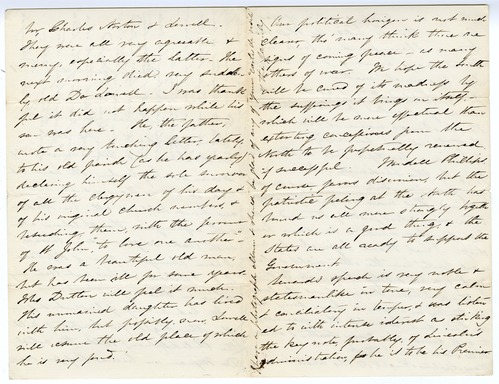 for Charles Norton & Lowell.
They were all very agreeable &
merry, especially the latter. The
next morning died very sudden-
ly old Dr Lowell. I was thank
ful it did not happen while his
son was here. He, the father,
wrote a very touching letter, lately,
to his old parish (as he has yearly)
declaring himself the sole survivor
of all the clergymen of his day &
of his original church members, &
beseeching them, with the fervour
of St John, "to love one another"
He was a beautiful old man,
but has been ill for some years.
Mrs Dutton will feel it much.
His unmarried daughter has lived
with him, but probably, now, Lowell
will resume the old place of which
he is very fond.
Our political horizon is not much
clearer, tho' many think there are
signs of coming peace — as many
others of war. We hope the South
will be cured of its madness by
the sufferings it brings on itself
which will be more effectual than
extorting concessions from the
North to be perpetually renewed
if successful. Wendell Phillips
of course favors disunion, but the
patriotic feeling at the North has
bound us all more strongly togeth
er which is a good thing, & the
States are all ready to support the
Government.
Seward's speech is very noble &
statesmanlike in tone, very calm
& conciliatory in temper, & was listen
ed to with intense interest as striking
the key note, probably, of Lincoln's
administration, for he is to be his Premier